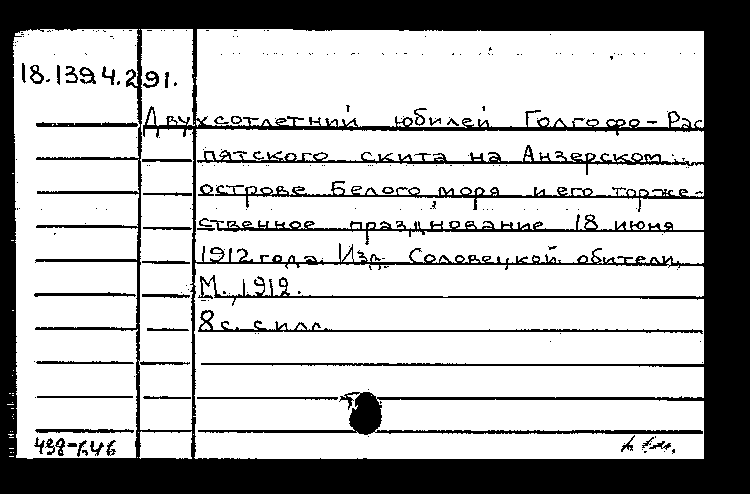 18.139.4.291.
Двухсотлетний юбилей Голгофо-Рас
пятского скита на Анзерском
острове Белого моря и его торже-
ственное празднование 18 июня
1912 года. Изд. Соловецкой обители,
М., 1912.
8 с. с илл.